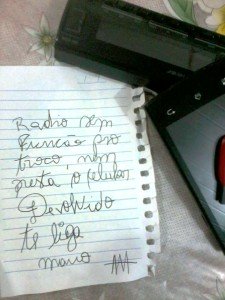 Radio sem
Funcão pro
troco, nem
presta o celular
Devolvido
te liga
mario